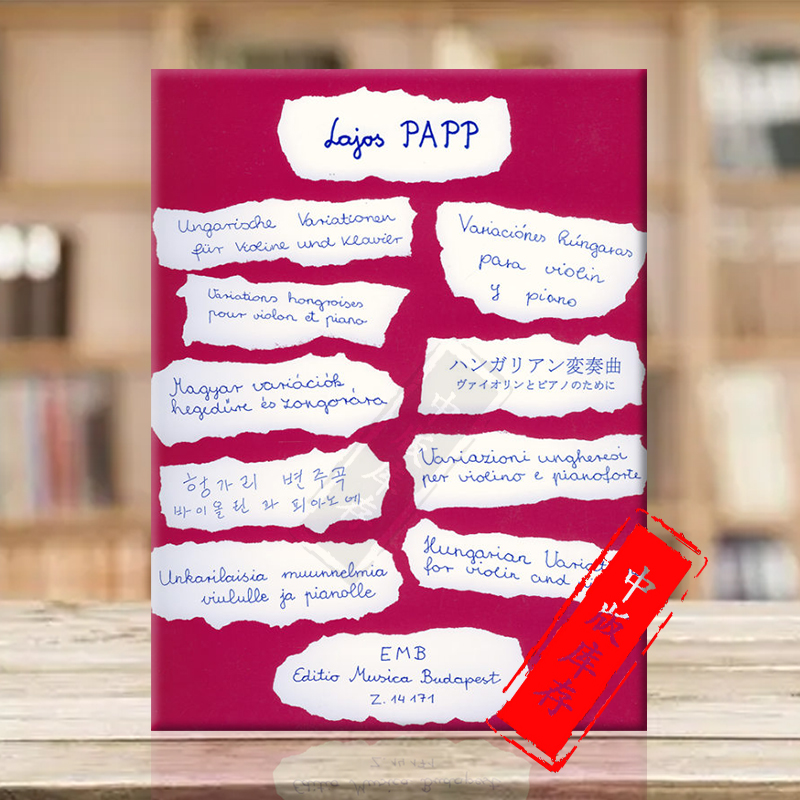 Lajos PAPP
Ungarische Variationen
für Violine und Klavier
Variaciónes húngaras
para violin
y piano
Variations hongroises
pour violon et piano
ハンガリアン変奏曲
ヴァイオリンとピアノのために
Magyar variációk
hegedűre és zongorára
Variazioni ungheresi
per violino e pianoforte
헝가리 변주곡
바이올린 라 피아노에
Hungarian
for violin and
Unkarilaisia muunnelmia
viululle ja pianolle
EMB
Editio Musica Budapest
Z. 14 171
中版库存